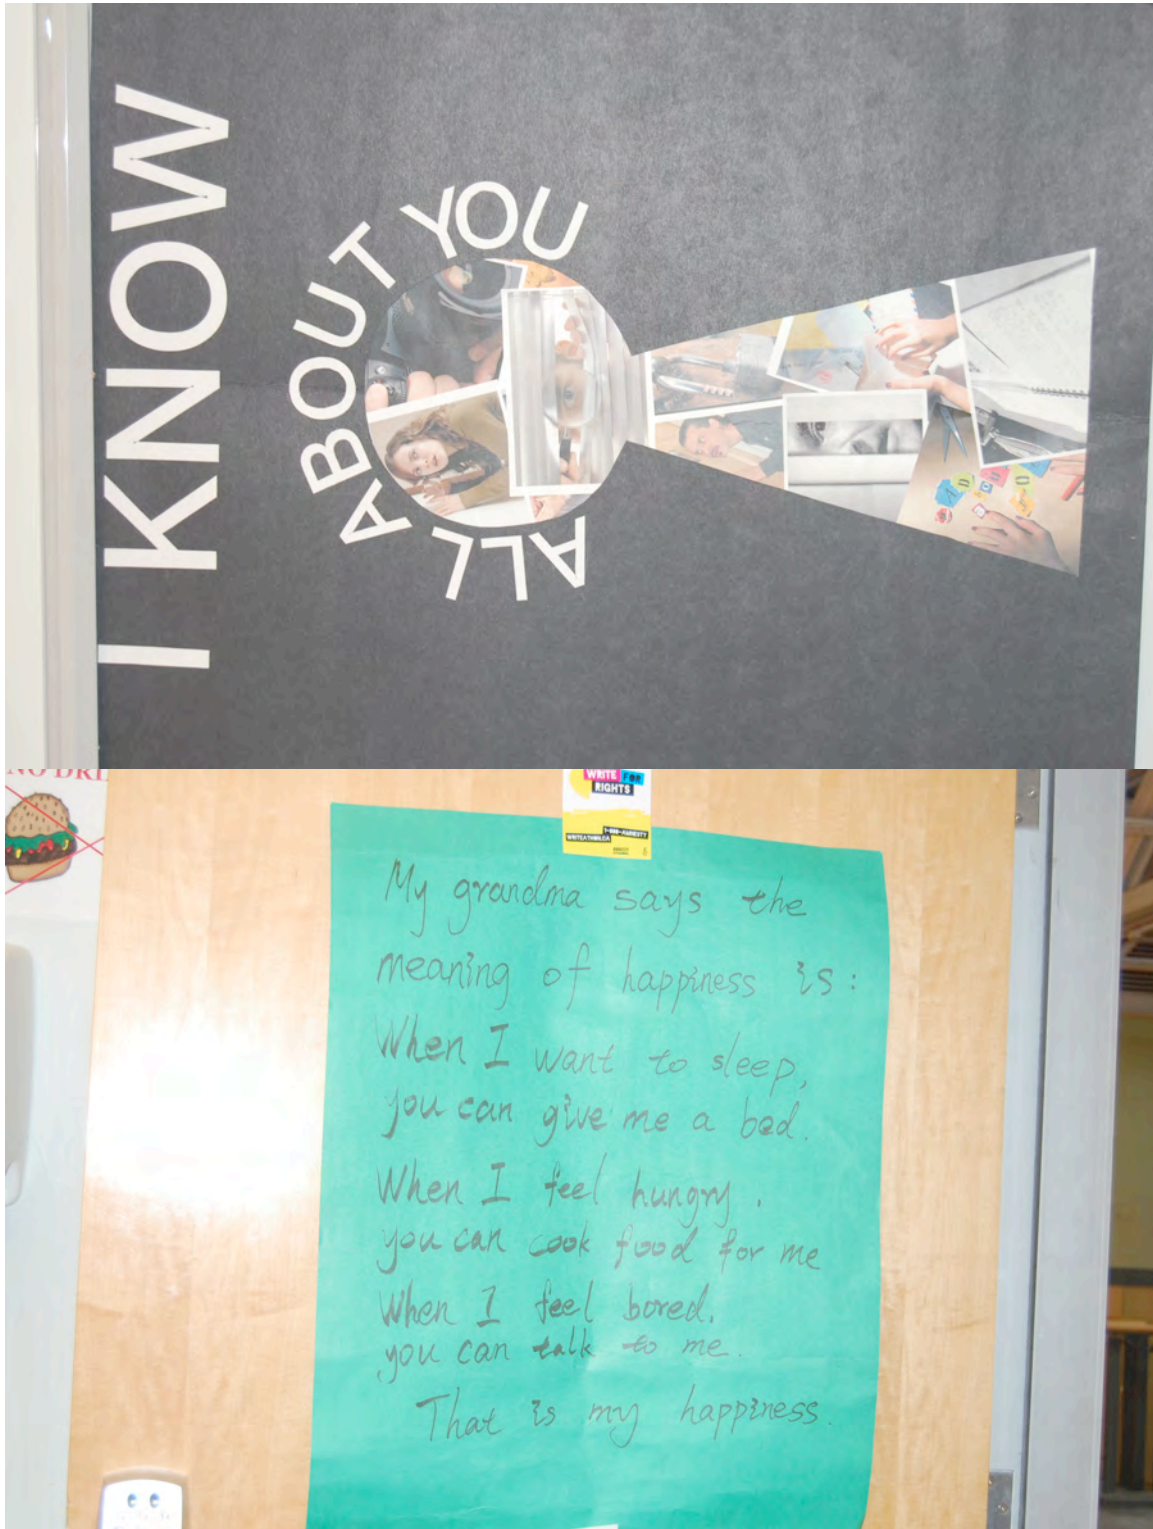 I KNOW
ALL ABOUT YOU
NO DRI
WRITE FOR
RIGHTS
1-800-AMNESTY
WRITEATHON.CA
My grandma says the
meaning of happiness is:
When I want to sleep,
you can give me a bed.
When I feel hungry.
you can cook food for me
When I feel bored.
you can talk to me.
That is my happiness.